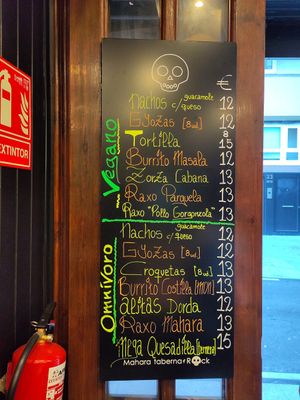 EXTINTOR
€
Vegano
Nachos c/ guacamole queso 12
Gyozas [8ud] 12
Tortilla 8 15
Burrito Masala 12
Zorza Cabana 13
Raxo Parguela 13
Raxo "Pollo Gorgonzola" 13
Omnívoro
Nachos c/ guacamole queso 12
Gyozas [8ud] 12
Croquetas [8ud] 13
Burrito Costilla 13
Alitas Dorda 12
Raxo Mahara 13
Mega Quesadilla 15
Mahara taberna Rock